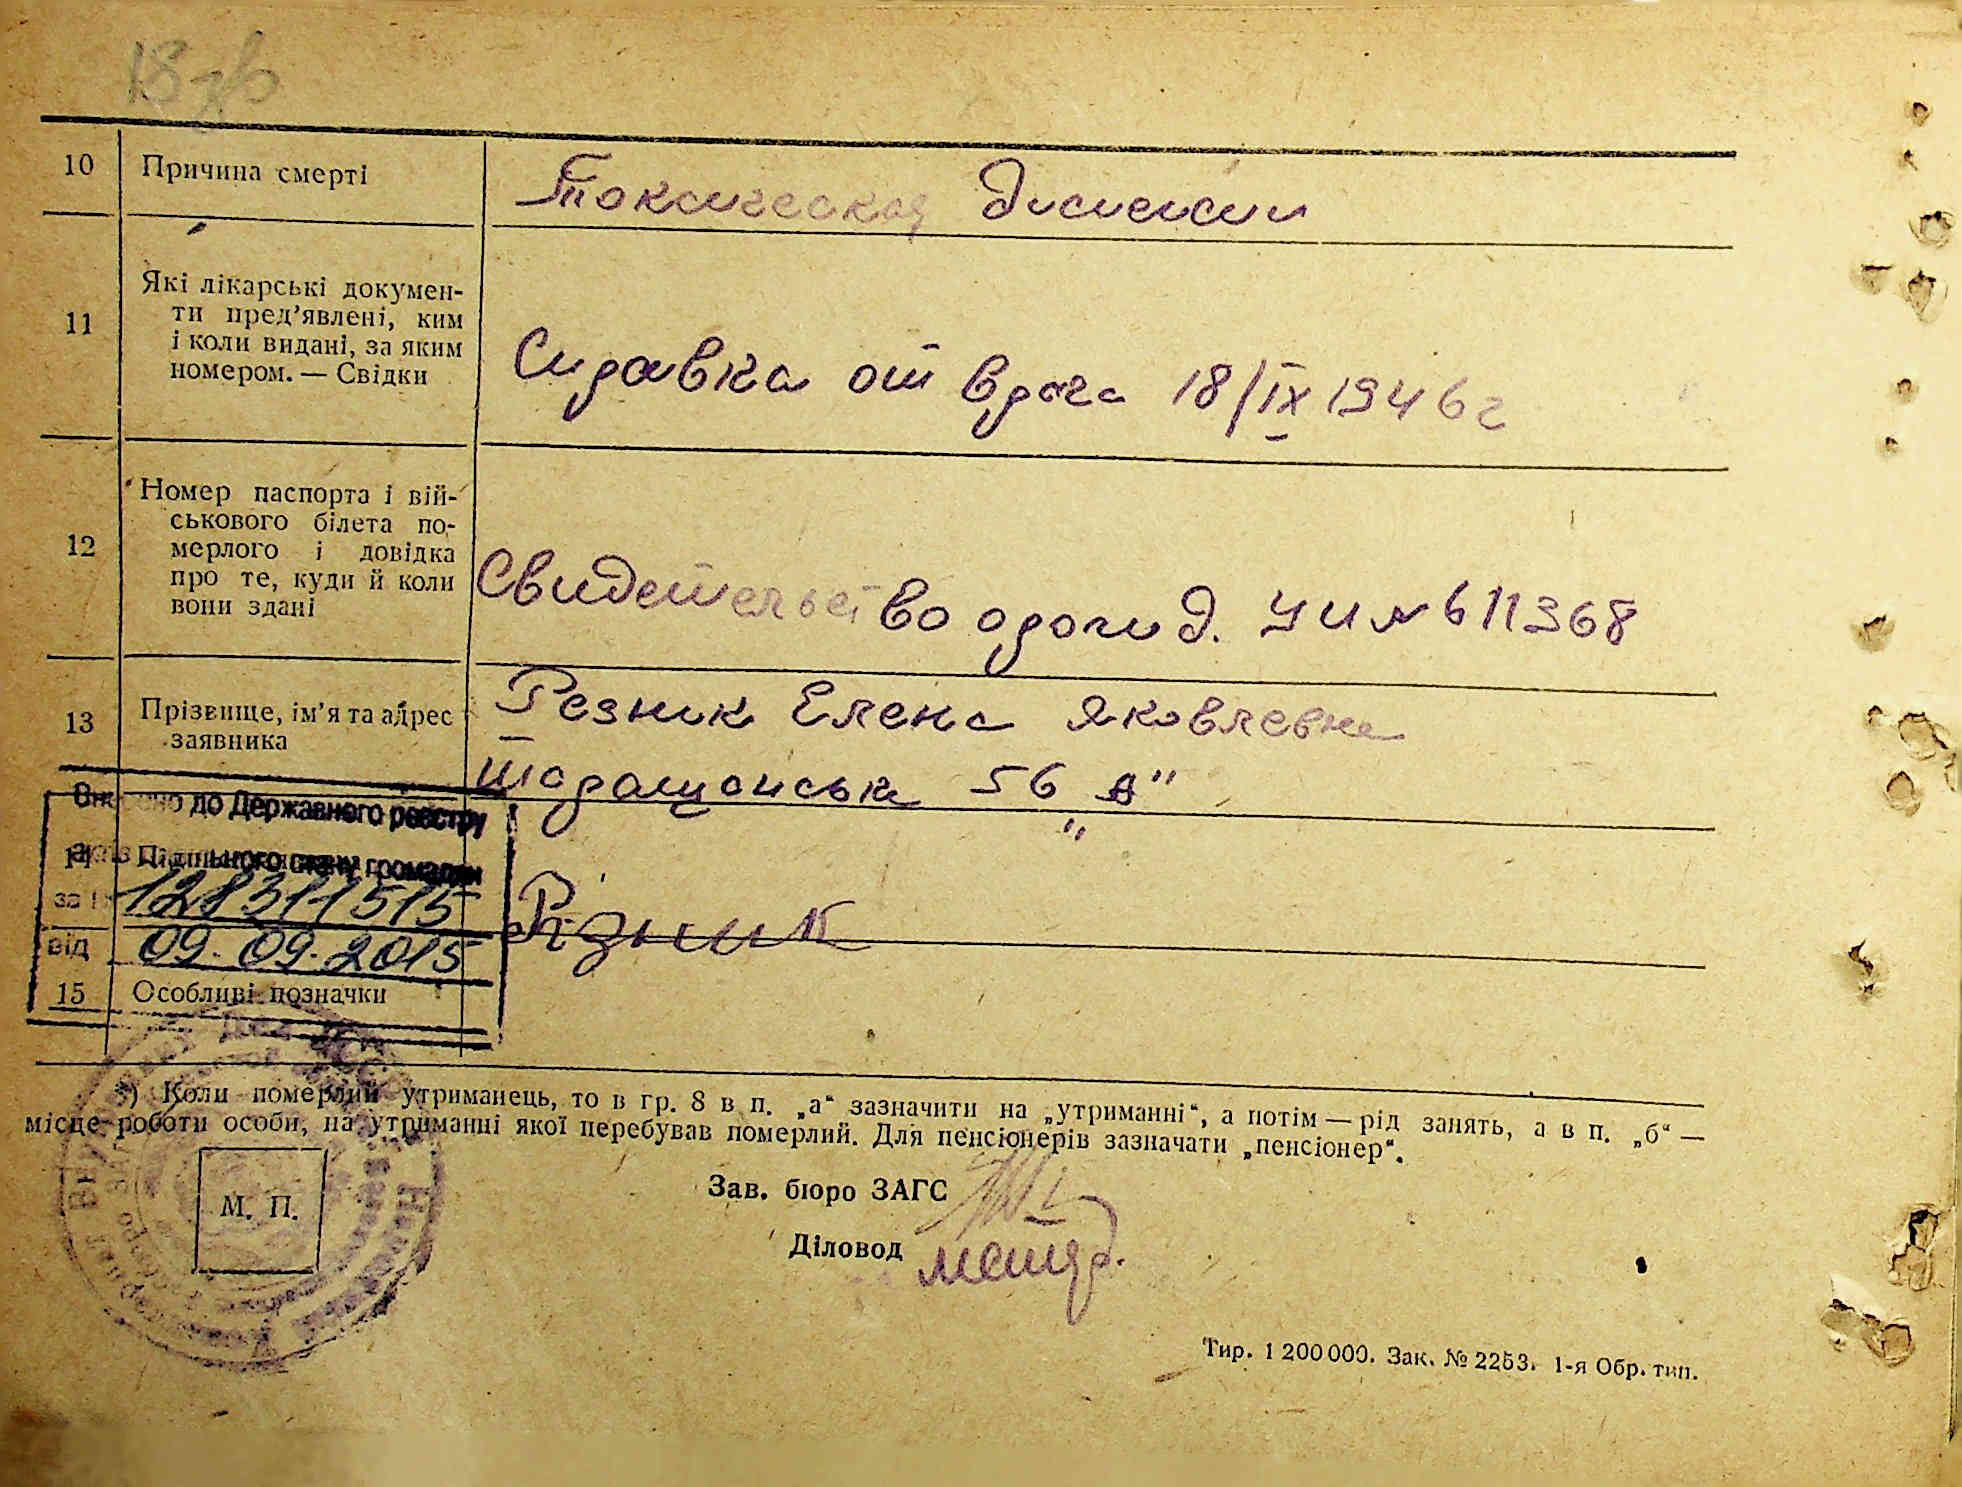 18
10 Причина смерті
Токсическая Диспепсия
11 Які лікарські докумен-
ти пред'явлені, ким
і коли видані, за яким
номером. — Свідки
Справка от врача 18/IX 1946 г
12 Номер паспорта і вій-
ськового білета по-
мерлого і довідка
про те, куди й коли
вони здані
Свидетельство о рожд. УИ № 611368
13 Прізвище, ім'я та адрес
заявника
Резник Елена Яковлевна
56 „а"
до Державного реєстру
стану громадян
14
за
128311515
від 09.09.2015
Різник
15 Особливі позначки
*) Коли померлий утриманець, то в гр. 8 в п. „а“ зазначити на „утриманні“, а потім — рід занять, а в п. „б“ —
місце роботи особи, на утриманні якої перебував померлий. Для пенсіонерів зазначати „пенсіонер“.
М. П.
Зав. бюро ЗАГС
Діловод
Тир. 1 200 000. Зак. № 2253. 1-я Обр. тип.